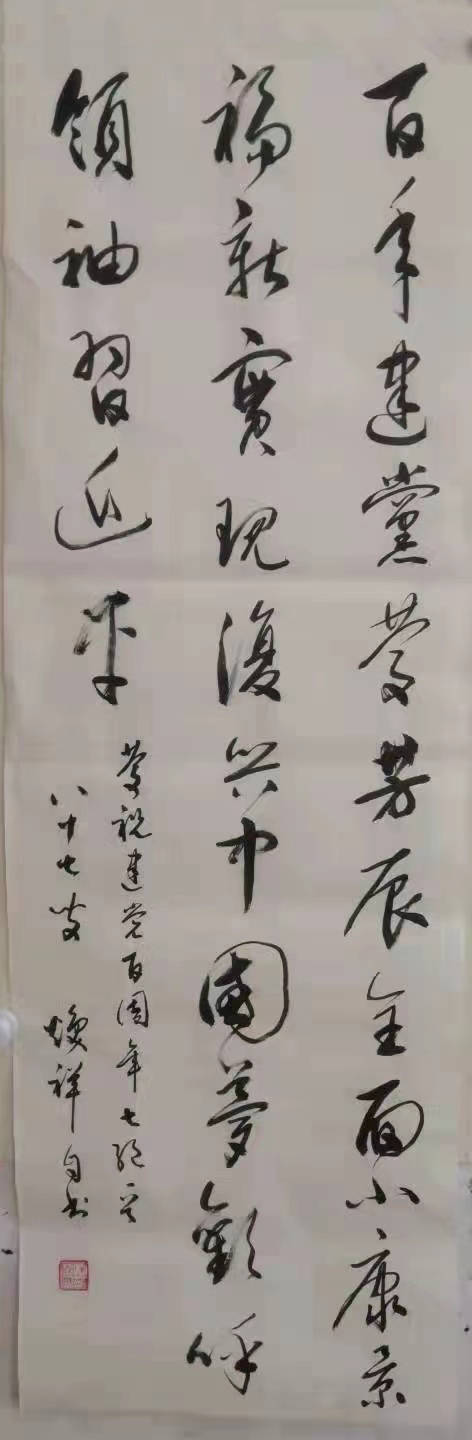 百年建黨慶芳辰全面小康景
福新實現復興中國夢歡呼
領袖習近平
慶祝建党百周年七絕一首
八十七叟 煥祥自书